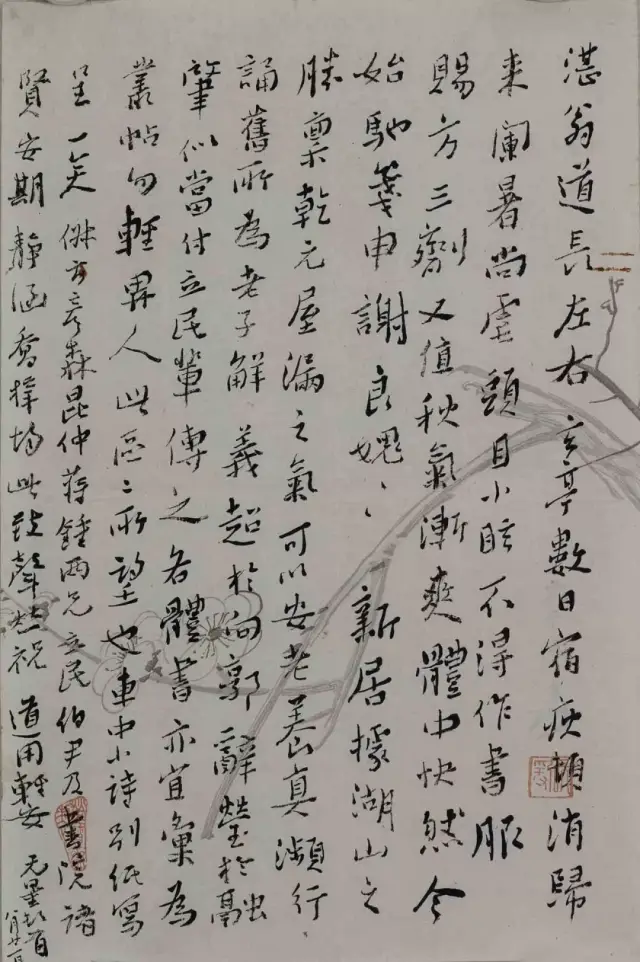 湛翁道長左右 玄亭數日宿疾頓消歸
来闌暑尚虐頭目小眩不淂作書服
賜方三劑又值秋氣漸爽體中快然今
始馳箋申謝良媿〻 新居據湖山之
勝稟乾元屋漏之氣可以安老養真瀕行
誦舊所為老子解義超於向郭辭瑩於融
肇似當付立民輩傳之各體書亦宜彙為
叢帖勿輕畀人此區〻所望也車中小詩别紙寫
呈一笑 森昆仲蔣鍾兩兄立民伯尹及書院諸
賢安期靜涵喬梓均此致聲並祝 道用輕安 无量頓首
八月廿一日